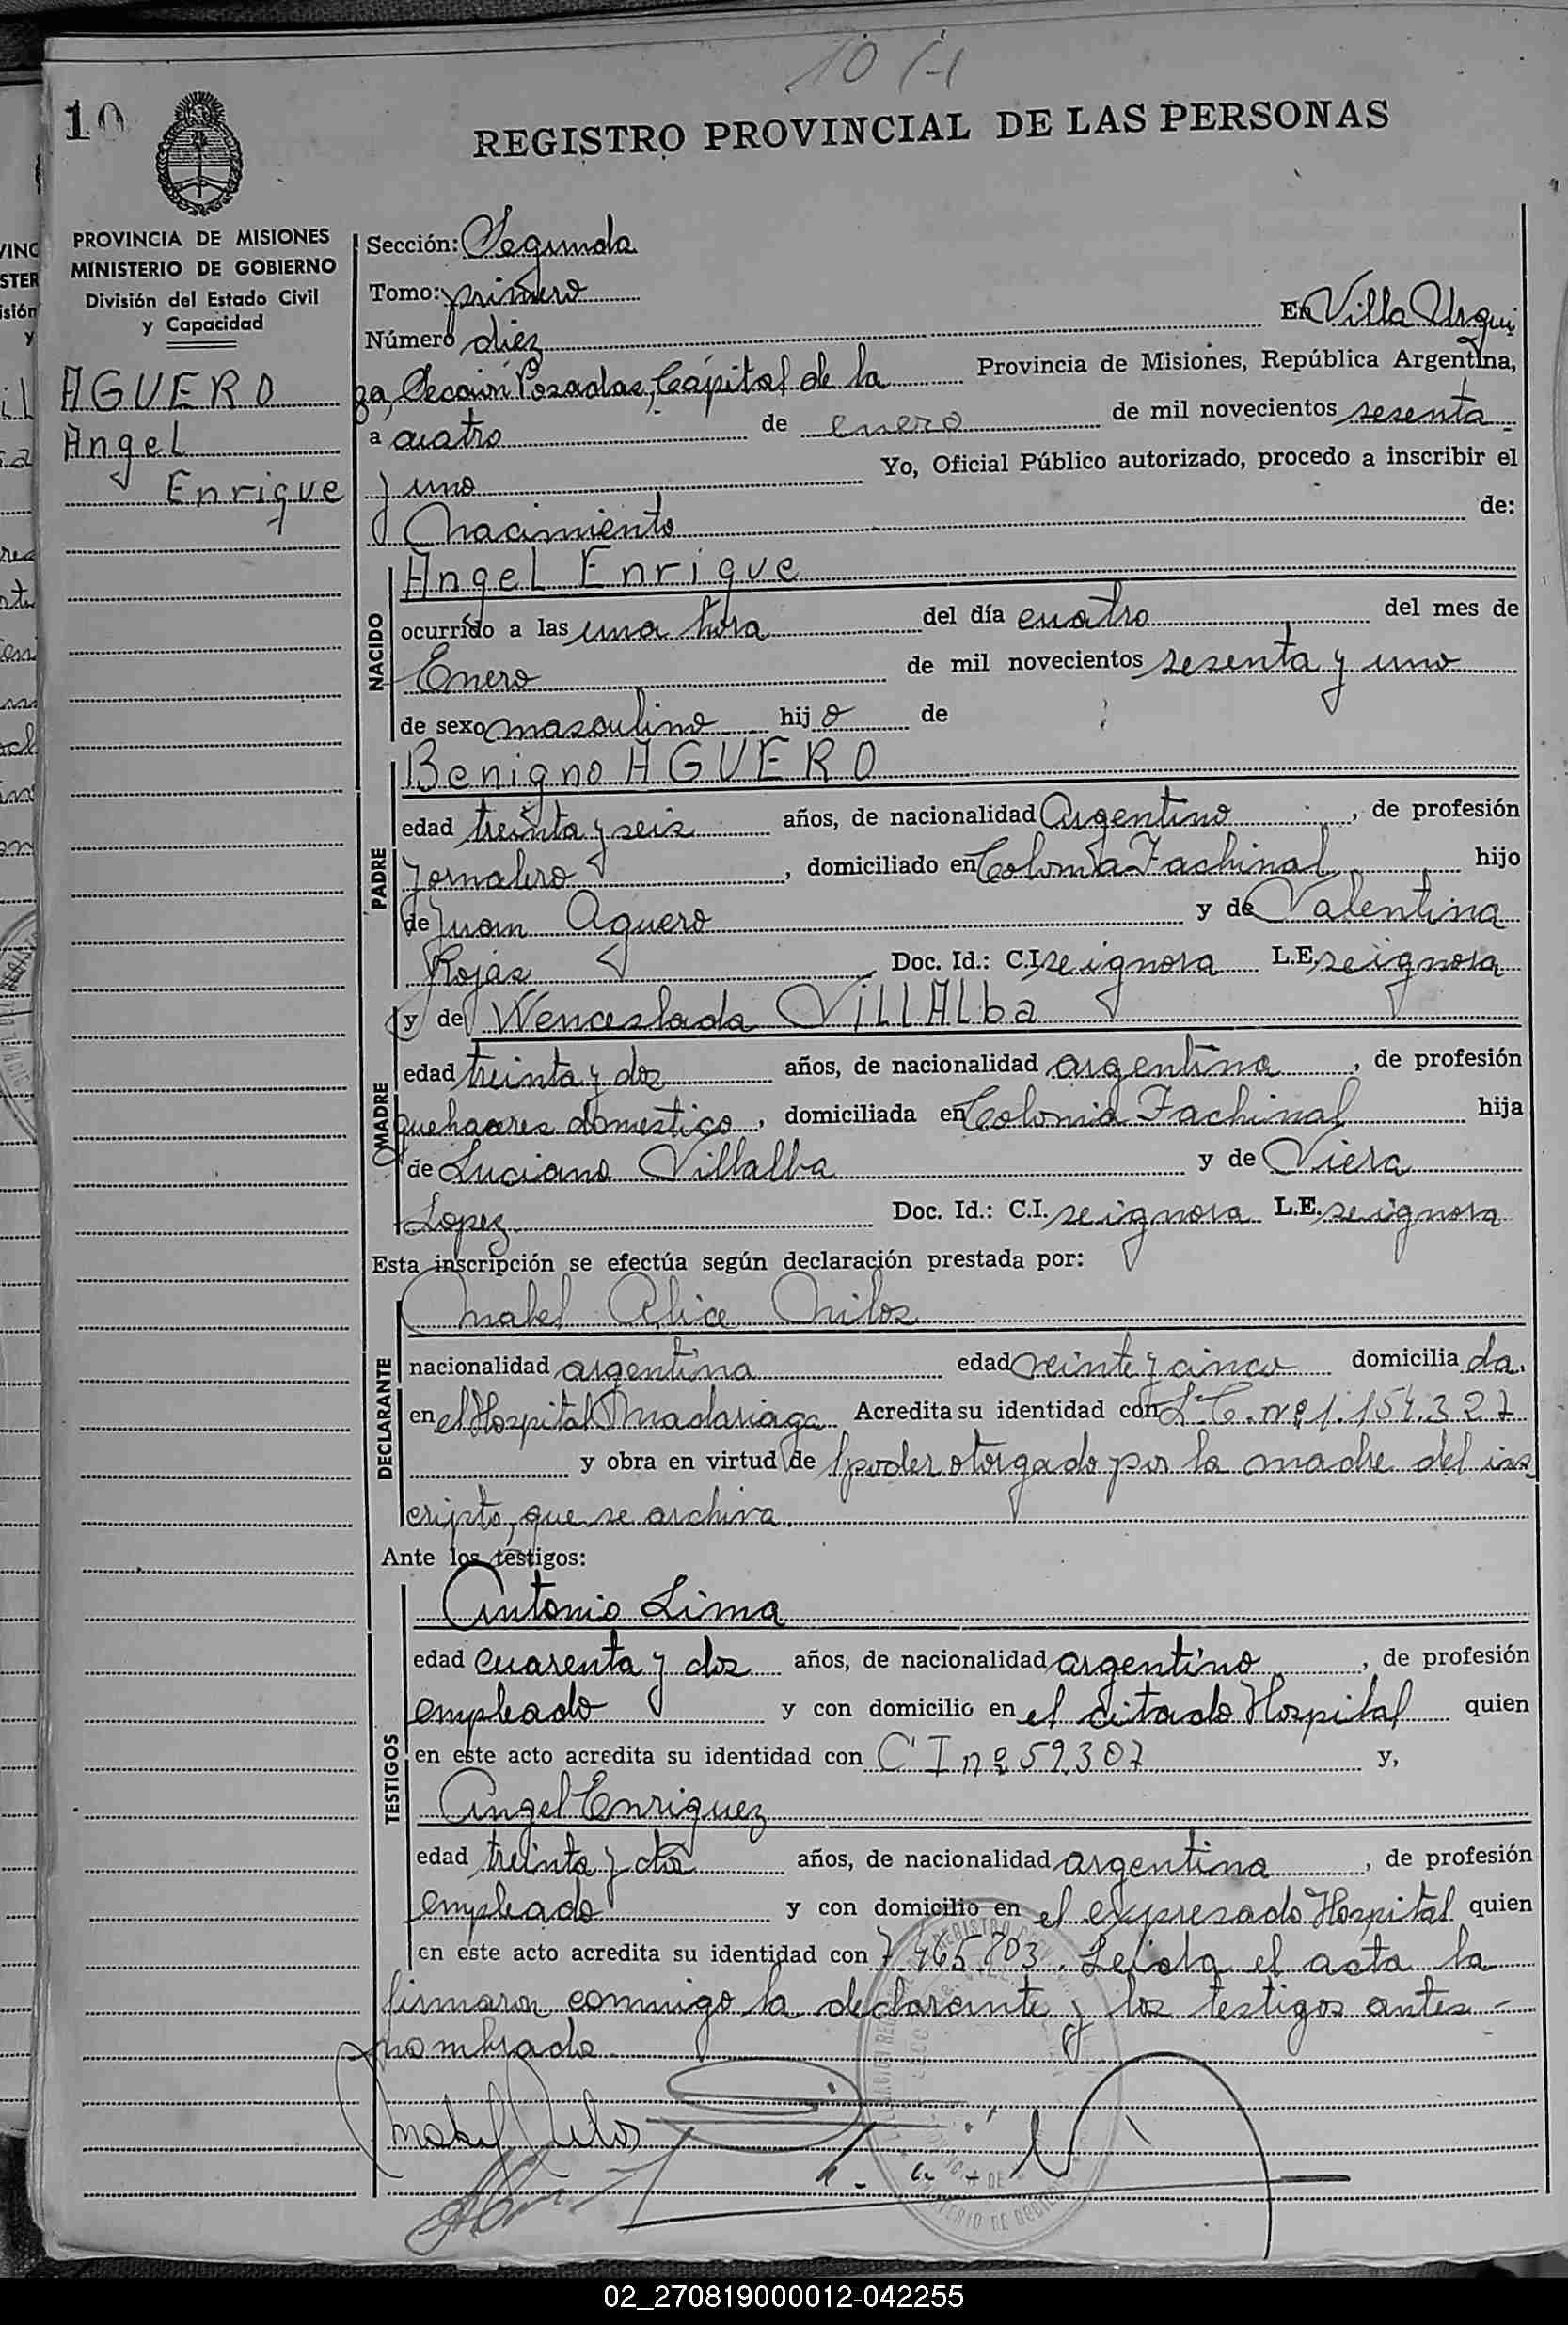 10
REGISTRO PROVINCIAL DE LAS PERSONAS
PROVINCIA DE MISIONES
MINISTERIO DE GOBIERNO
División del Estado Civil
y Capacidad
AGUERO
Angel
Enrique
Sección: Segunda
Tomo: primero
Número diez En Villa Urqui
za, Sección Posadas, Capital de la Provincia de Misiones, República Argentina,
a cuatro de enero de mil novecientos sesenta
y uno Yo, Oficial Público autorizado, procedo a inscribir el
Nacimiento de:
NACIDO
Angel Enrique
ocurrido a las una hora del día cuatro del mes de
Enero de mil novecientos sesenta y uno
de sexo masculino hijo de
PADRE
Benigno AGUERO
edad treinta y seis años, de nacionalidad Argentino, de profesión
Jornalero, domiciliado en Colonia Fachinal hijo
de Juan Aguero y de Valentina
Rojas Doc. Id.: C.I. se ignora L.E. se ignora
MADRE
y de Wenceslada VILLALba
edad treinta y dos años, de nacionalidad argentina, de profesión
quehaceres domestico, domiciliada en Colonia Fachinal hija
de Luciano Villalba y de Viera
Lopez Doc. Id.: C.I. se ignora L.E. se ignora
Esta inscripción se efectúa según declaración prestada por:
DECLARANTE
Mabel Alice Milos
nacionalidad argentina edad veinte y cinco domicilia da.
en el Hospital Madariaga Acredita su identidad con L.C. nº 1.154.327
y obra en virtud de poder otorgado por la madre del ins
cripto, que se archiva.
Ante los testigos:
TESTIGOS
Antonio Lima
edad cuarenta y dos años, de nacionalidad argentino, de profesión
empleado y con domicilio en el citado Hospital quien
en este acto acredita su identidad con C I nº 59.307 y,
Angel Enriquez
edad treinta y dos años, de nacionalidad argentina, de profesión
empleado y con domicilio en el expresado Hospital quien
en este acto acredita su identidad con 7.465.803. Leida el acta la
firmaron conmigo la declarante y los testigos antes -
nombrado.
02_270819000012-042255